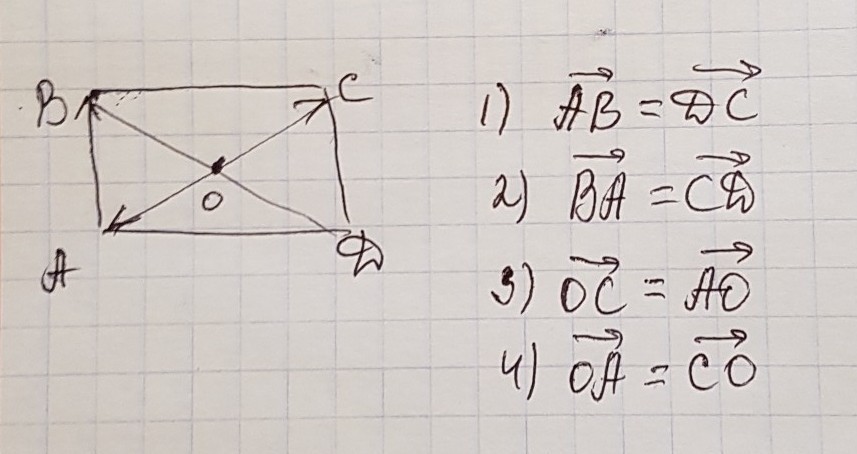 B
C
O
A
D
1) AB⃗ = DC⃗
2) BA⃗ = CD⃗
3) OC⃗ = AO⃗
4) OA⃗ = CO⃗